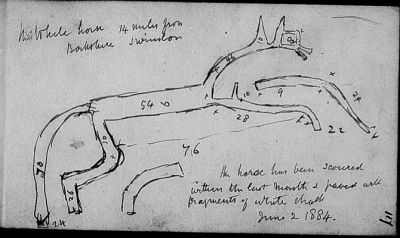 White horse 14 miles from
Berkshire Swindon
10
92
46
54
6
10
9
24
28
22
76
10
70
26
24
the horse has been scoured
within the last month & paved with
fragments of white chalk
June 2 1884.